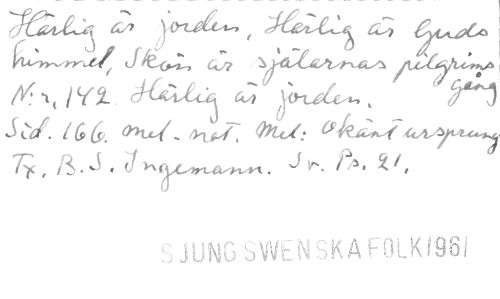 Härlig är jorden, Härlig är Guds
himmel, Skön är själarnas pilgrims
gång
N:r, 142. Härlig är jorden.
Sid. 166. mel. not. Mel: Okänt ursprung
Tx. B. S. Ingemann. Sv. Ps. 21.
SJUNG SWENSKA FOLK 1961